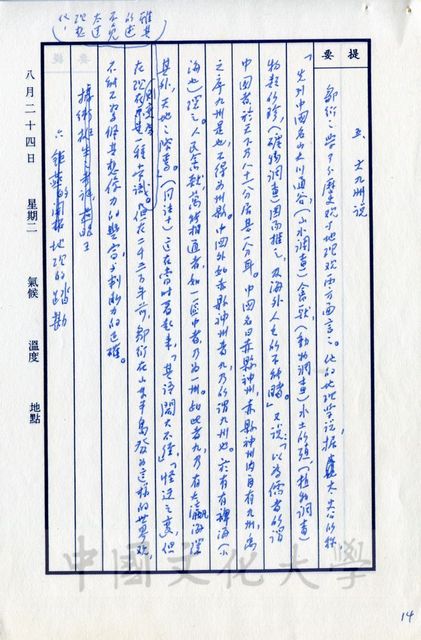 提要
五、大九州說
鄒衍之學可分歷史觀與地理觀兩方面言之。他的地理學說,據太史公所稱
「先列中國名山大川通谷(山水調查)禽獸(動物調查)水土所殖(植物調查)
物類所珍(礦物調查)因而推之,及海外人之所不能睹。」又說:「以為儒者所謂
中國者於天下乃八十一分居其一分耳。中國名曰赤縣神州,赤縣神州內自有九州,禹
之序九州是也,不得為州數。中國外如赤縣神州者九,乃所謂九州也。於是有裨海(小
海也)環之,人民禽獸莫能相通者,如一區中者,乃為一州。如此者九,乃有大瀛海環
其外,天地之際焉」(同註十)這在當時看起來,「其語閎大不經」,怪迂之,但
在現在則變成一種常識。但在二千三百年前,鄒衍在山東半島發為這樣的世界觀,
不能不驚佩其想像力的豐富與判斷力的正確。
(雖其所述不免太過理想化)
據衛挺生考證
六、鉅燕的開拓地理的踏勘
八月二十四日 星期二 氣候 溫度 地點
中國文化大學
14